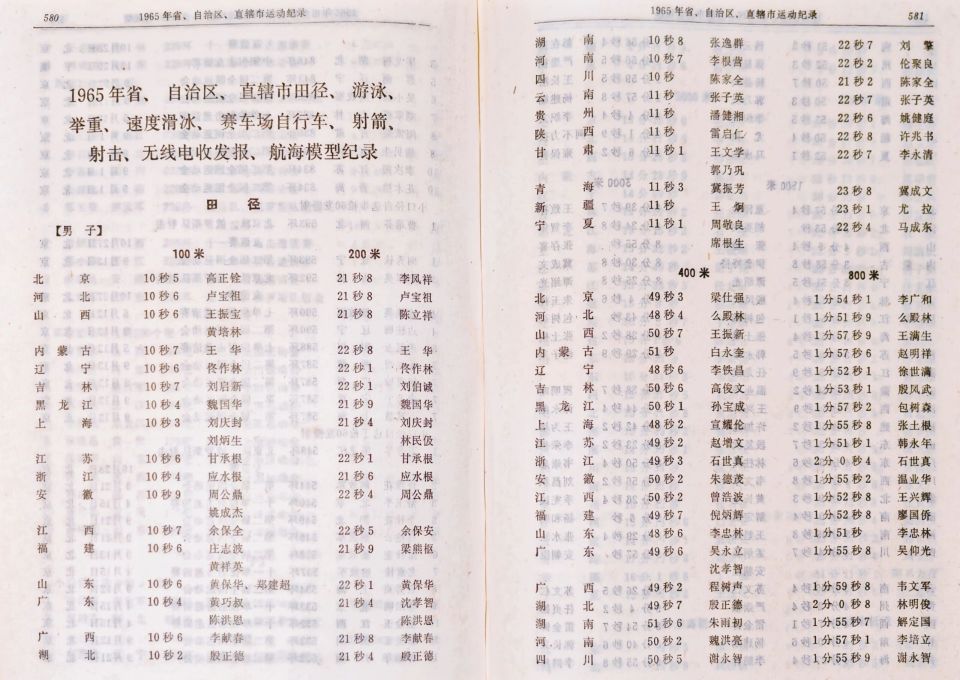 580 1965年省、自治区、直辖市运动纪录
1965年省、自治区、直辖市田径、游泳、
举重、速度滑冰、赛车场自行车、射箭、
射击、无线电收发报、航海模型纪录
田径
【男子】
100米 200米
北京 10秒5 高正铨 21秒8 李风祥
河北 10秒6 卢宝祖 21秒8 卢宝祖
山西 10秒6 王振宝 21秒8 陈立祥
黄培林
内蒙古 10秒7 王华 22秒8 王华
辽宁 10秒6 佟作林 22秒1 佟作林
吉林 10秒7 刘启新 22秒1 刘伯诚
黑龙江 10秒4 魏国华 21秒9 魏国华
上海 10秒3 刘庆封 21秒4 刘庆封
刘炳生 林民伋
江苏 10秒6 甘承根 22秒1 甘承根
浙江 10秒4 应水根 21秒6 应水根
安徽 10秒9 周公鼎 22秒4 周公鼎
姚成杰
江西 10秒7 余保全 22秒5 余保安
福建 10秒6 庄志波 21秒9 梁熊枢
黄祥英
山东 10秒6 黄保华、郑建超 22秒1 黄保华
广东 10秒4 黄巧叔 21秒4 沈孝智
陈洪恩 陈洪恩
广西 10秒6 李献春 21秒8 李献春
湖北 10秒2 殷正德 21秒4 殷正德
1965年省、自治区、直辖市运动纪录 581
湖南 10秒8 张逸群 22秒7 刘擎
河南 10秒7 李根营 22秒2 伦聚良
四川 10秒 陈家全 21秒2 陈家全
云南 11秒 张子英 22秒7 张子英
贵州 11秒 潘健湘 22秒6 姚健庭
陕西 11秒 雷启仁 22秒8 许兆书
甘肃 11秒1 王文学 22秒7 李永清
郭乃巩
青海 11秒3 冀振芳 23秒8 冀成文
新疆 11秒 王炯 23秒1 尤拉
宁夏 11秒1 周敬良 22秒4 马成东
席根生
400米 800米
北京 49秒3 梁仕强 1分54秒1 李广和
河北 48秒4 么殿林 1分51秒9 么殿林
山西 50秒7 王振新 1分57秒9 王满生
内蒙古 51秒 白永奎 1分57秒6 赵明祥
辽宁 48秒6 李铁昌 1分52秒1 徐世满
吉林 50秒6 高俊文 1分53秒1 殷凤武
黑龙江 50秒1 孙宝成 1分57秒2 包树森
上海 48秒2 宣耀伦 1分55秒8 张土根
江苏 49秒2 赵增文 1分51秒1 韩永年
浙江 49秒3 石世真 2分0秒4 石世真
安徽 50秒2 朱德茂 1分55秒2 温业华
江西 50秒2 曾浩波 1分52秒8 王兴辉
福建 49秒7 倪炳辉 1分52秒8 廖国侨
山东 48秒6 李忠林 1分51秒 李忠林
广东 49秒6 吴永立 1分55秒8 吴仰光
沈孝智
广西 49秒2 程树声 1分59秒8 韦文军
湖北 49秒7 殷正德 2分0秒8 林明俊
湖南 51秒6 朱雨初 1分55秒7 解定国
河南 50秒2 魏洪亮 1分57秒1 李培立
四川 50秒5 谢永智 1分55秒9 谢永智